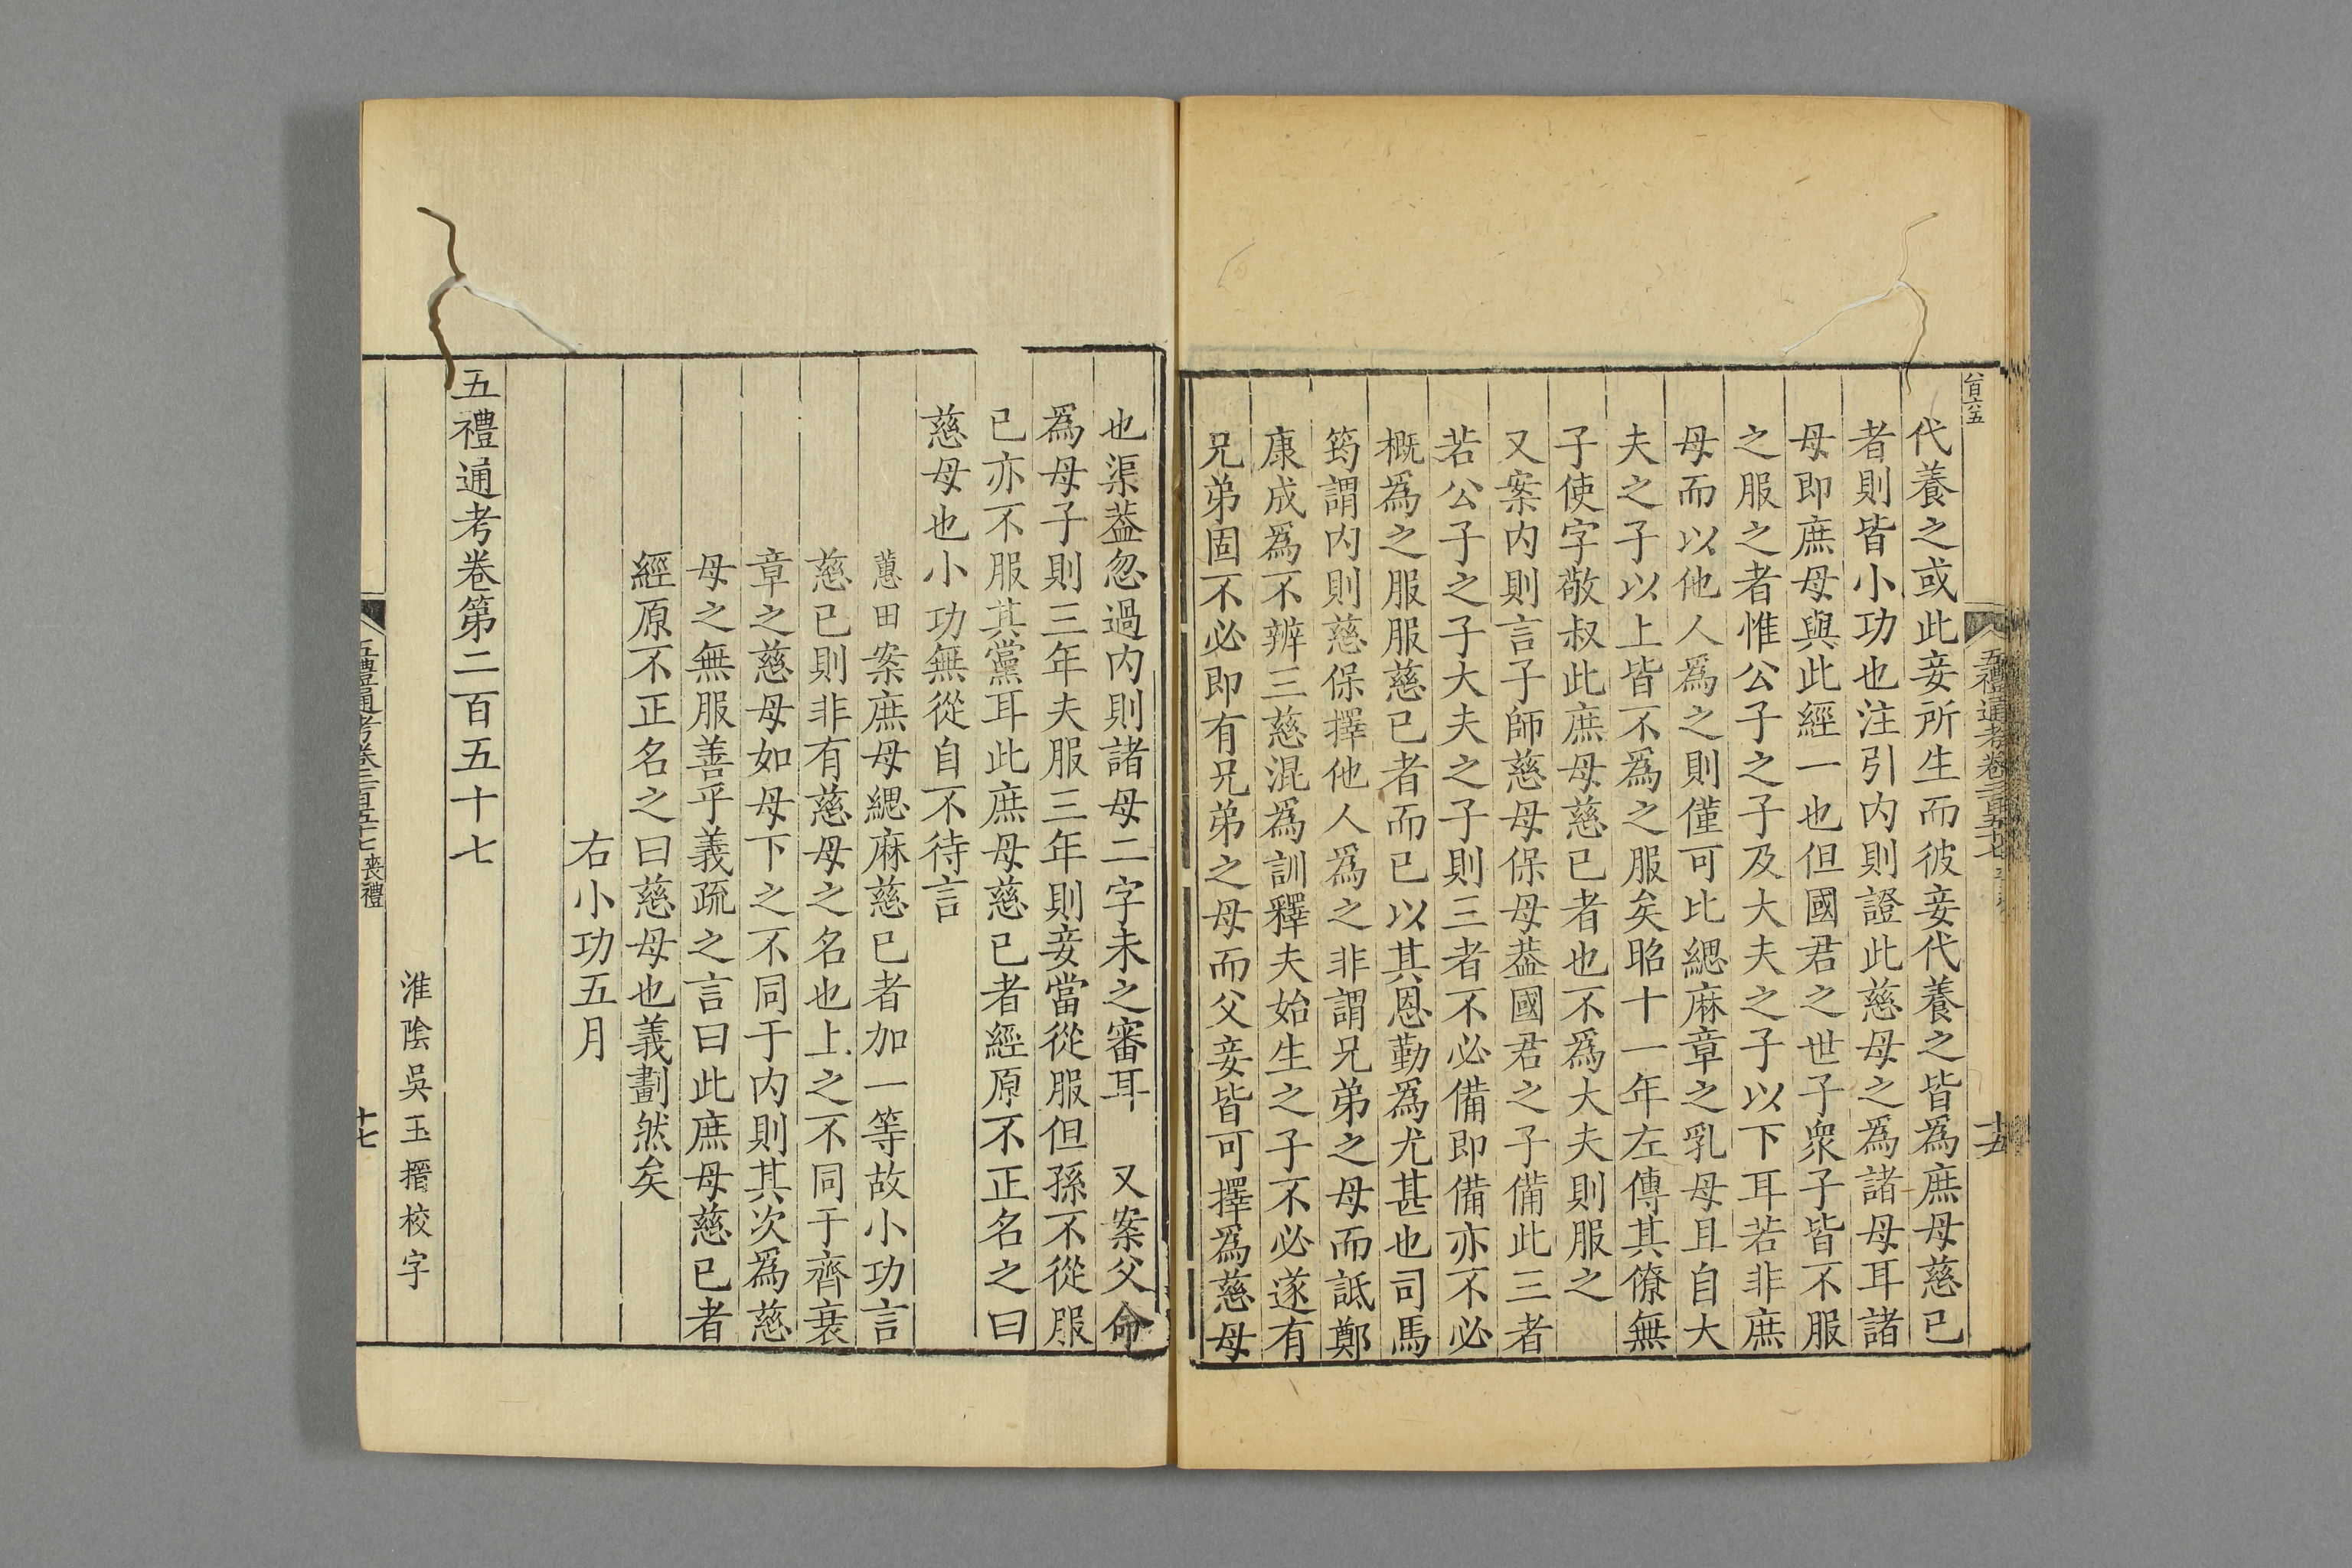 百六五
代養之或此妾所生而彼妾代養之皆爲庶母慈已
者則皆小功也注引内則證此慈母之爲諸母耳諸
母即庶母與此經一也但國君之世子衆子皆不服
之服之者惟公子之子及大夫之子以下耳若非庶
母而以他人爲之則僅可比緦麻章之乳母且自大
夫之子以上皆不爲之服矣昭十一年左傳其僚無
子使字敬叔此庶母慈已者也不爲大夫則服之
又案内則言子師慈母保母葢國君之子備此三者
若公子之子大夫之子則三者不必備即備亦不必
概爲之服服慈已者而已以其恩勤爲尤甚也司馬
筠謂内則慈保擇他人爲之非謂兄弟之母而詆鄭
康成爲不辨三慈混爲訓釋夫始生之子不必遂有
兄弟固不必即有兄弟之母而父妾皆可擇爲慈母
也渠葢忽過内則諸母二字未之審耳　又案父命
爲母子則三年夫服三年則妾當從服但孫不從服
已亦不服其黨耳此庶母慈已者經原不正名之曰
慈母也小功無從自不待言
蕙田案庶母緦麻慈已者加一等故小功言
慈已則非有慈母之名也上之不同于齊衰
章之慈母如母下之不同于内則其次爲慈
母之無服善乎義疏之言曰此庶母慈已者
經原不正名之曰慈母也義劃然矣
右小功五月
五禮通考卷第二百五十七
淮陰吳玉搢校字
五禮通考卷二百五十七 喪禮
十七